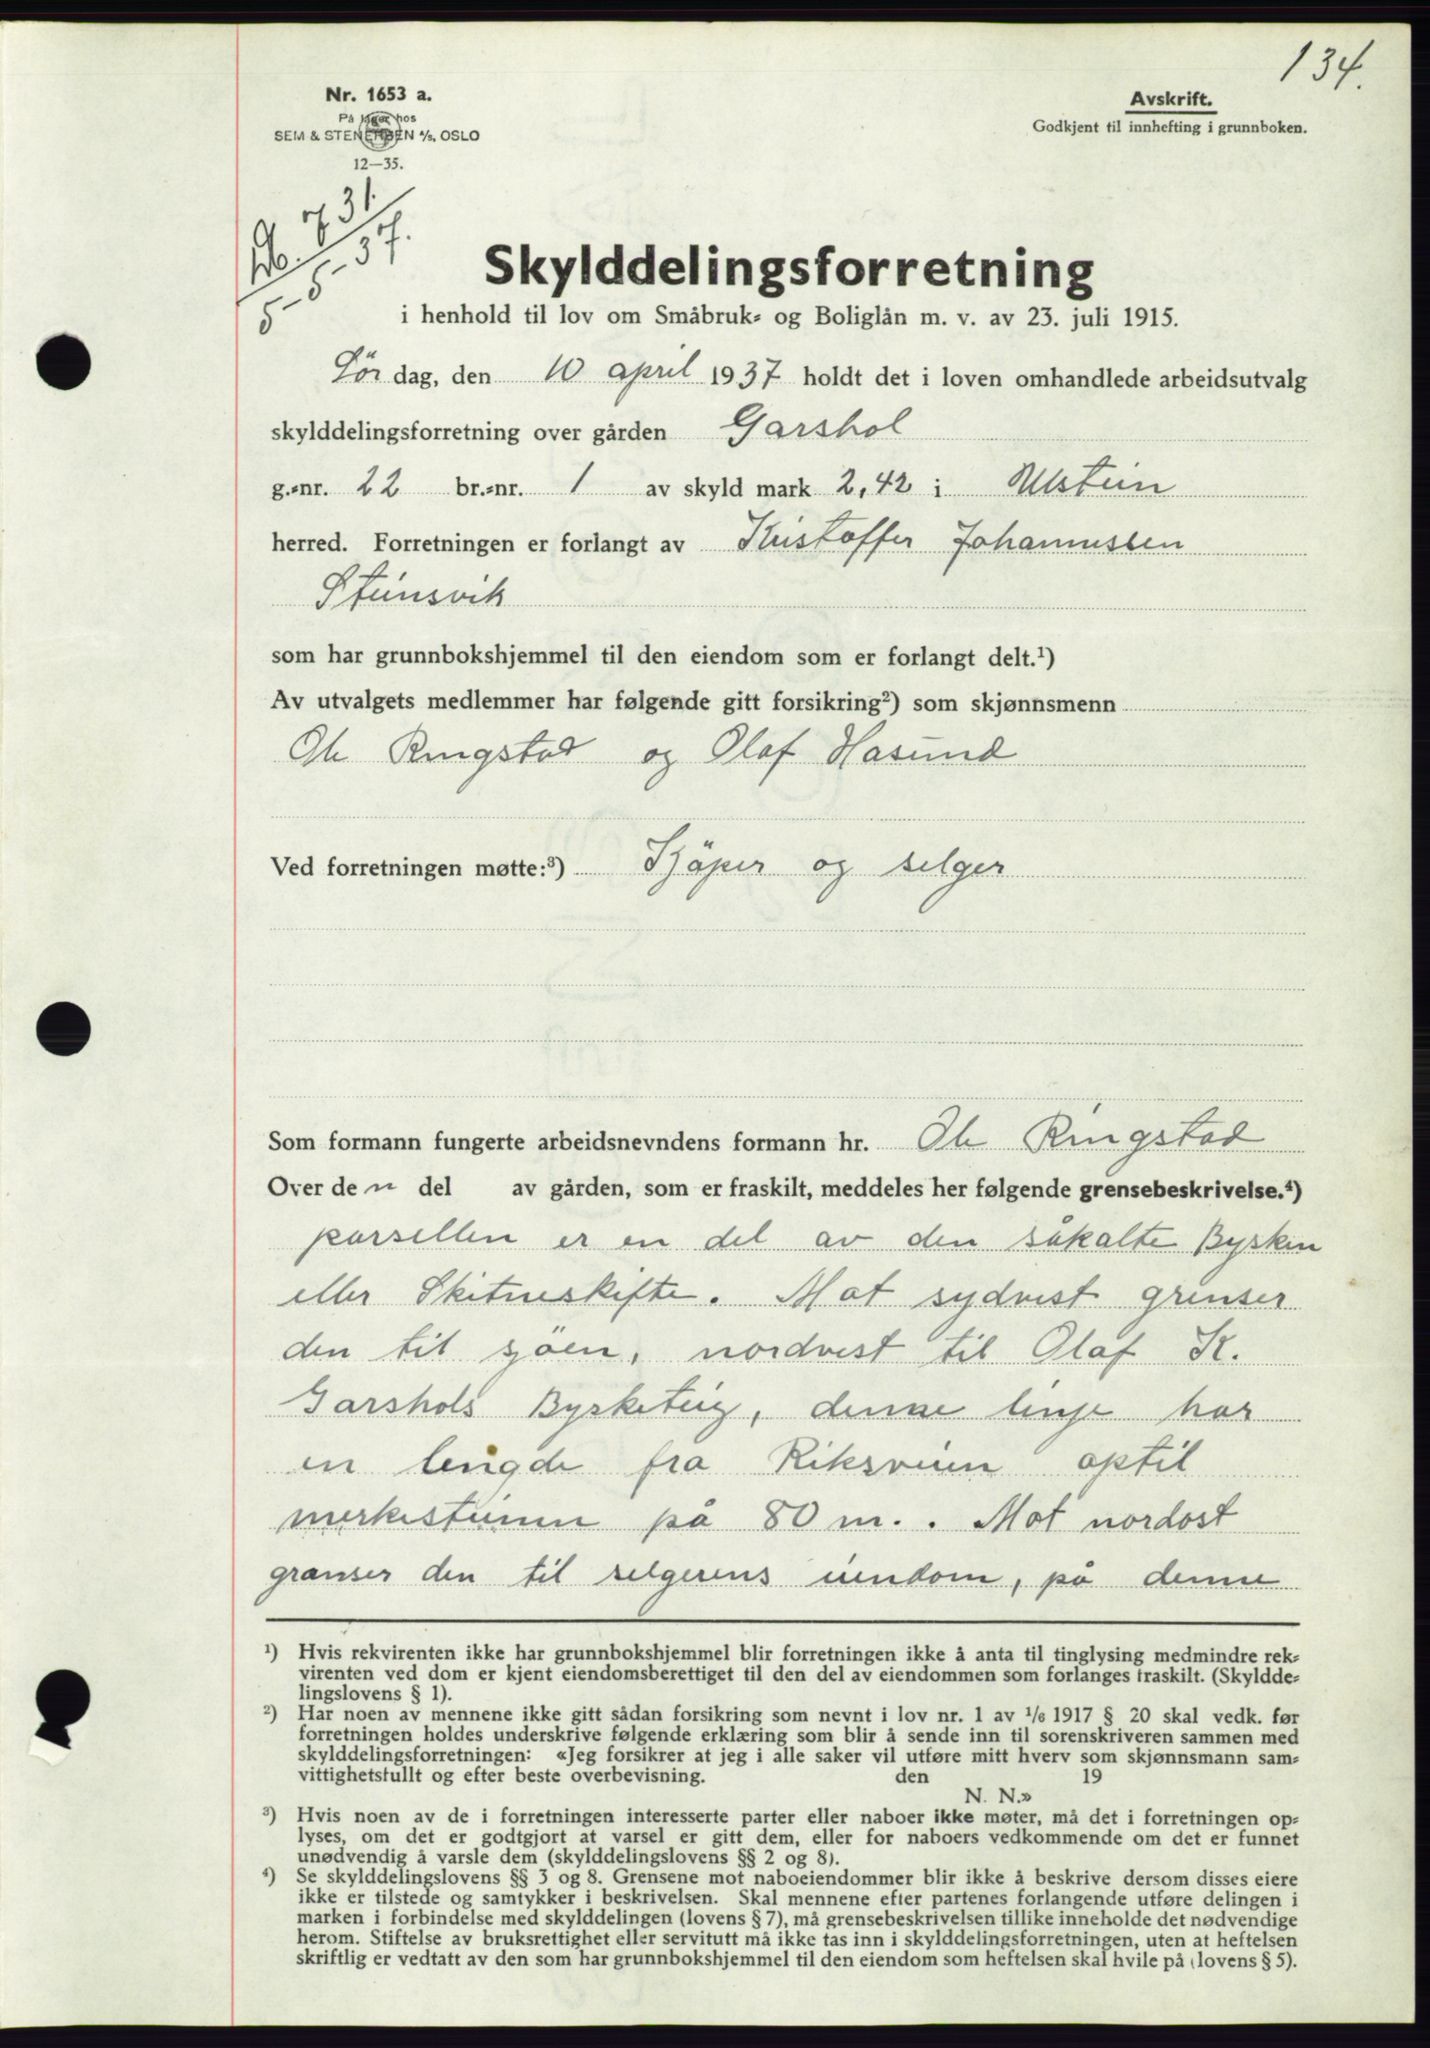 134.
Nr. 1653 a.
På lager hos
SEM & STENERSEN A/S, OSLO
12—35.
Avskrift.
Godkjent til innhefting i grunnboken.
Db. 731.
5-5-37.
Skylddelingsforretning
i henhold til lov om Småbruk- og Boliglån m. v. av 23. juli 1915.
Lör dag, den 10 april 1937 holdt det i loven omhandlede arbeidsutvalg
skylddelingsforretning over gården Garshol
g.-nr. 22 br.-nr. 1 av skyld mark 2,42 i Ulstein
herred. Forretningen er forlangt av Kristoffer Johannessen
Steinsvik
som har grunnbokshjemmel til den eiendom som er forlangt delt.¹)
Av utvalgets medlemmer har følgende gitt forsikring²) som skjønnsmenn
Ole Ringstad og Olaf Hasund
Ved forretningen møtte:³) Kjöper og selger
Som formann fungerte arbeidsnevndens formann hr. Ole Ringstad
Over den del av gården, som er fraskilt, meddeles her følgende grensebeskrivelse.⁴)
parsellen er en del av den såkalte Bysken
eller Skitneskifte. Mot sydvest grenser
den til sjöen, nordvest til Olaf K.
Garshols Bysketeig, denne linje har
en lengde fra Riksveien optil
merkesteinen på 80 m.. Mot nordost
granser den til selgerens eiendom, på denne
¹) Hvis rekvirenten ikke har grunnbokshjemmel blir forretningen ikke å anta til tinglysing medmindre rek-
virenten ved dom er kjent eiendomsberettiget til den del av eiendommen som forlanges fraskilt. (Skyldde-
lingslovens § 1).
²) Har noen av mennene ikke gitt sådan forsikring som nevnt i lov nr. 1 av 1/6 1917 § 20 skal vedk. før
forretningen holdes underskrive følgende erklæring som blir å sende inn til sorenskriveren sammen med
skylddelingsforretningen: «Jeg forsikrer at jeg i alle saker vil utføre mitt hverv som skjønnsmann sam-
vittighetsfullt og efter beste overbevisning. den 19
N. N.»
³) Hvis noen av de i forretningen interesserte parter eller naboer ikke møter, må det i forretningen op-
lyses, om det er godtgjort at varsel er gitt dem, eller for naboers vedkommende om det er funnet
unødvendig å varsle dem (skylddelingslovens §§ 2 og 8).
⁴) Se skylddelingslovens §§ 3 og 8. Grensene mot naboeiendommer blir ikke å beskrive dersom disses eiere
ikke er tilstede og samtykker i beskrivelsen. Skal mennene efter partenes forlangende utføre delingen i
marken i forbindelse med skylddelingen (lovens § 7), må grensebeskrivelsen tillike inneholde det nødvendige
herom. Stiftelse av bruksrettighet eller servitutt må ikke tas inn i skylddelingsforretningen, uten at heftelsen
skriftlig er vedtatt av den som har grunnbokshjemmel til den eiendom som heftelsen skal hvile på (lovens § 5).